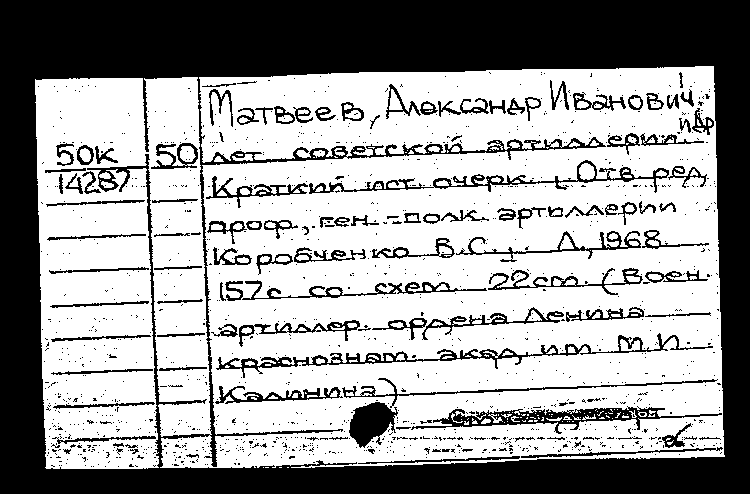 Матвеев, Александр Иванович.
и др
50К 50 лет советской артиллерии.
14287 Краткий ист. очерк. [Отв. ред.
проф., ген.-полк. артиллерии
Коробченко В.С.]. Л., 1968
157с. со схем. 22см. (Воен.
артиллер. ордена Ленина
краснознам. акад. им. М.И.
Калинина).